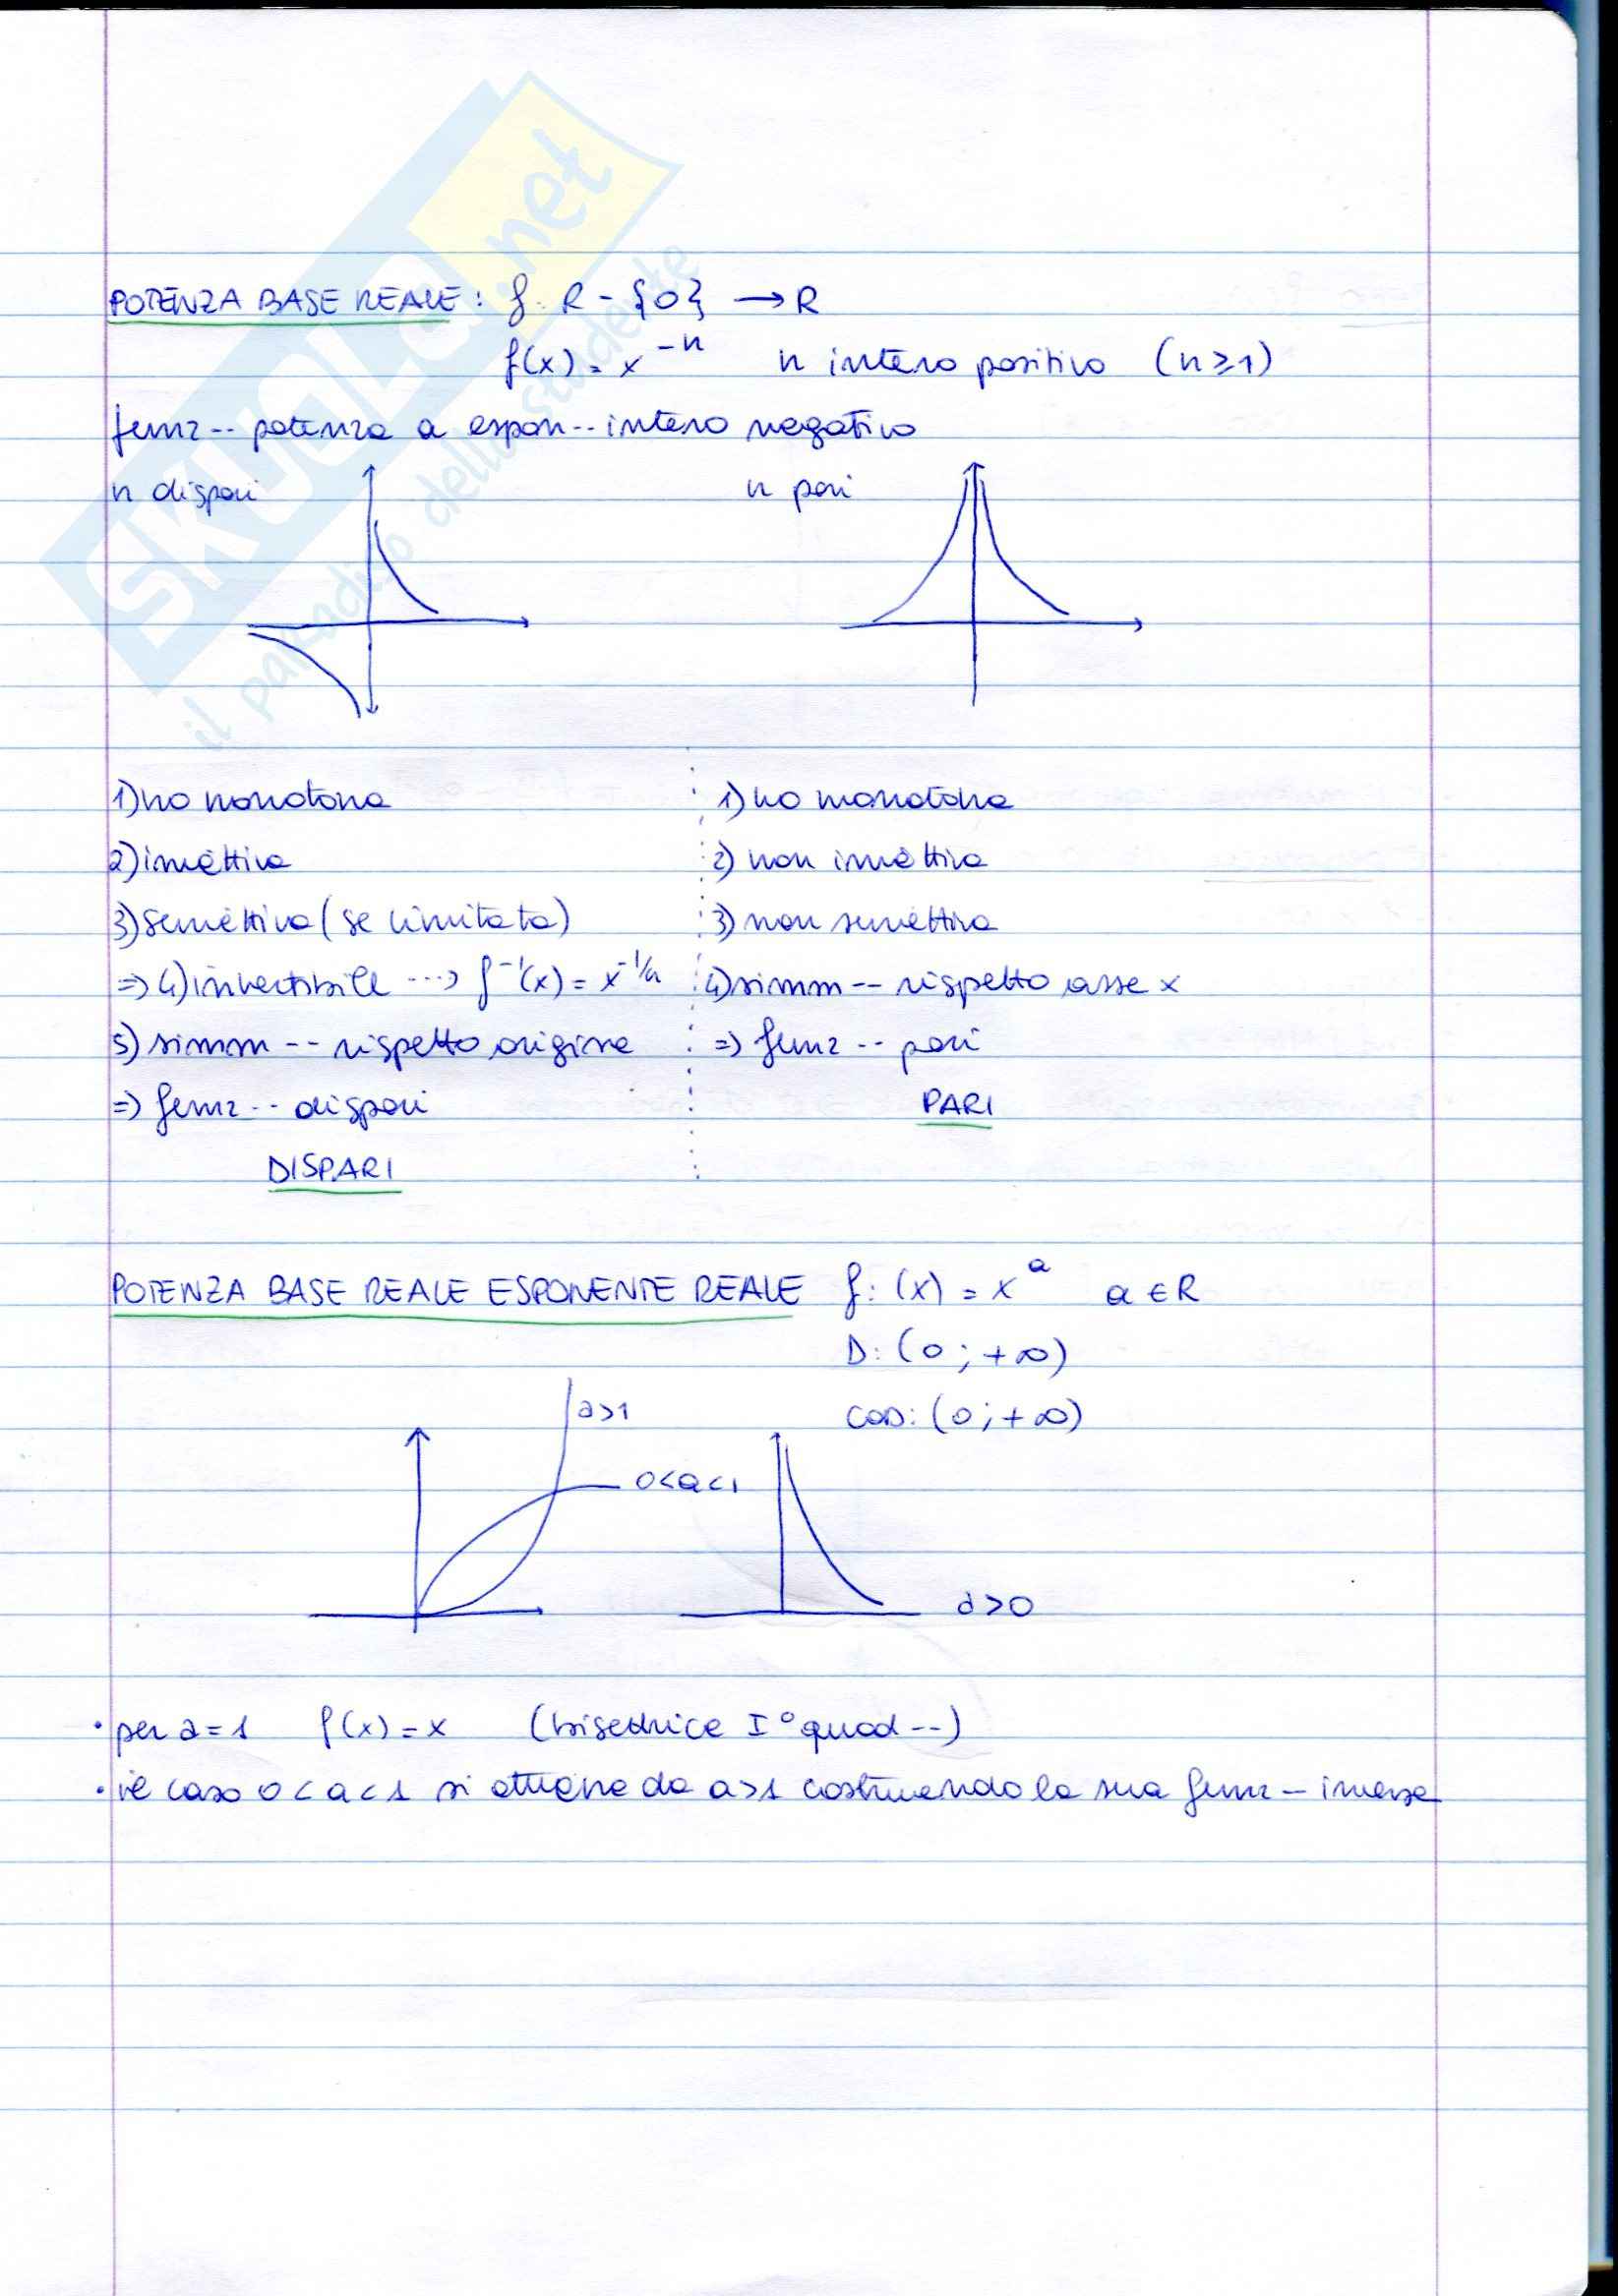 SKUOLA.net
il paradiso dello studente
POTENZA BASE REALE: f: R - {0} → R
f(x) = x^-n n intero positivo (n≥1)
funz-- potenza a espon-- intero negativo
n dispari
n pari
1) no monotona
2) iniettiva
3) suriettiva (se limitata)
=> 4) invertibile ---> f^-1(x) = x^-1/n
5) simm -- rispetto origine
=> funz -- dispari
DISPARI
1) no monotona
2) non iniettiva
3) non suriettiva
4) simm -- rispetto asse x
=> funz -- pari
PARI
POTENZA BASE REALE ESPONENTE REALE f: (x) = x^a a ∈ R
D: (0 ; +∞)
COD: (0 ; +∞)
a>1
0<a<1
a>0
• per a=1 f(x) = x (bisettrice I° quad --)
• il caso 0<a<1 si ottiene da a>1 costruendo la sua funz - inversa